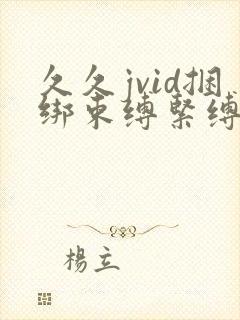 久久jvid捆
绑束缚緊缚
楊立